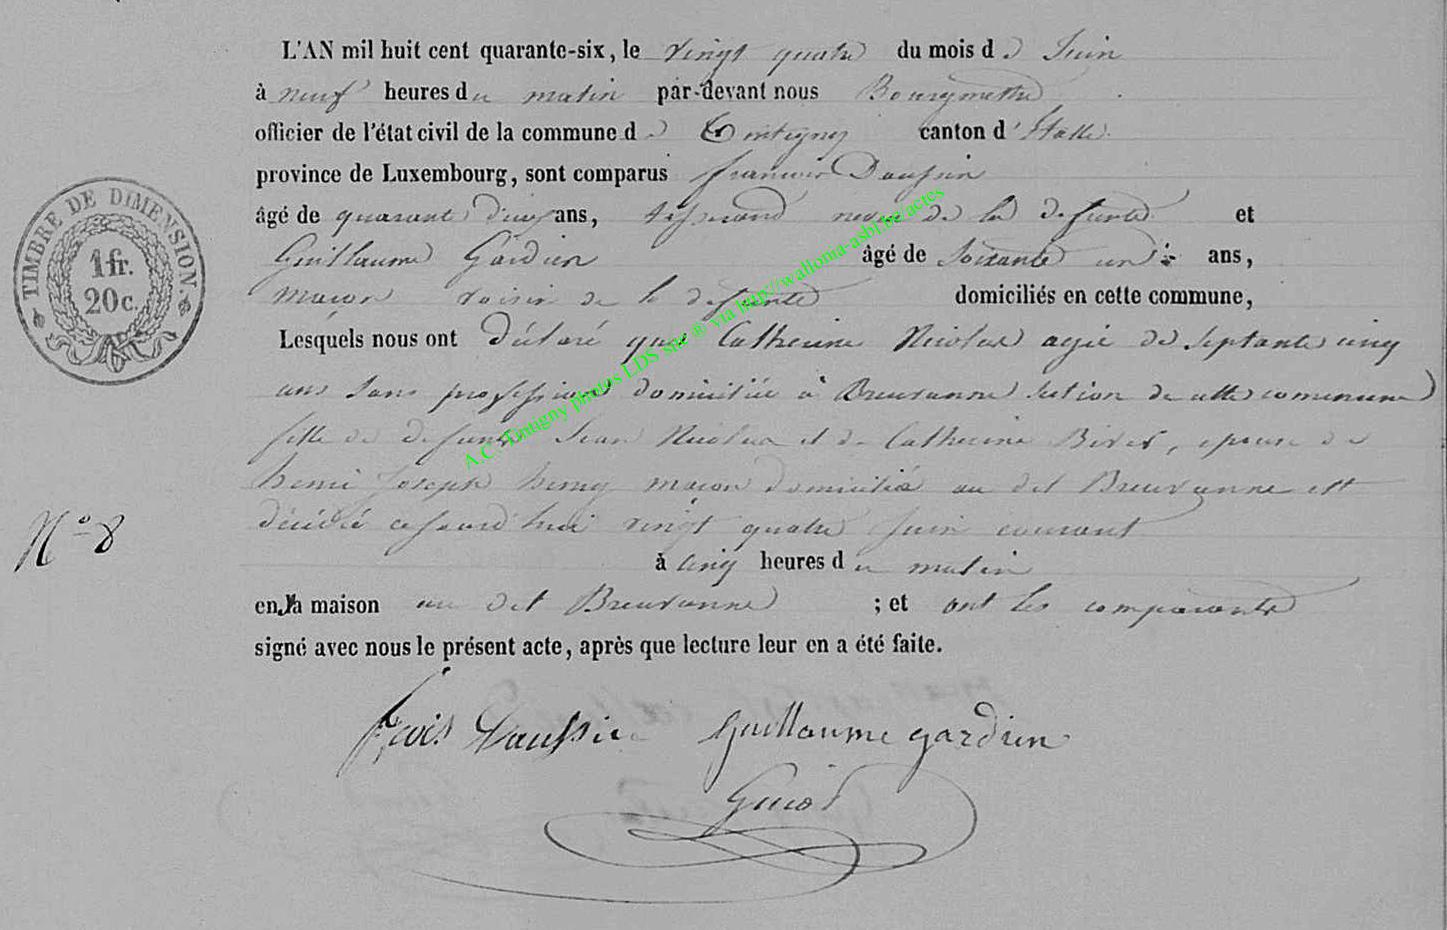 L'AN mil huit cent quarante-six, le vingt quatre du mois de Juin
à neuf heures du matin par-devant nous Bourgmestre
officier de l'état civil de la commune de Tintigny canton d'Etalle
province de Luxembourg, sont comparus francois Daussin
âgé de quarante deux ans, tisserand neveu de la defunte et
Guillaume Gardien âgé de Soixante un ans,
macon voisin de la defunte domiciliés en cette commune,
TIMBRE DE DIMENSION.
1 fr.
20 c.
Lesquels nous ont déclaré que Catherine Nicolas agée de septante cinq
ans sans profession domiciliée à Breuvanne section de cette commune
fille de defunt Jean Nicolas et de Catherine epouse de
henri Joseph henry macon domicilié au dit Breuvanne est
décédée cejourd'hui vingt quatre Juin courant
N° 8
à cinq heures du matin
en la maison au dit Breuvanne ; et ont les comparants
signé avec nous le présent acte, après que lecture leur en a été faite.
frcois Daussin Guillaume gardien
Guiot
A.C. Tintigny photos LDS site ® via http://wallonia-asbl.be/actes